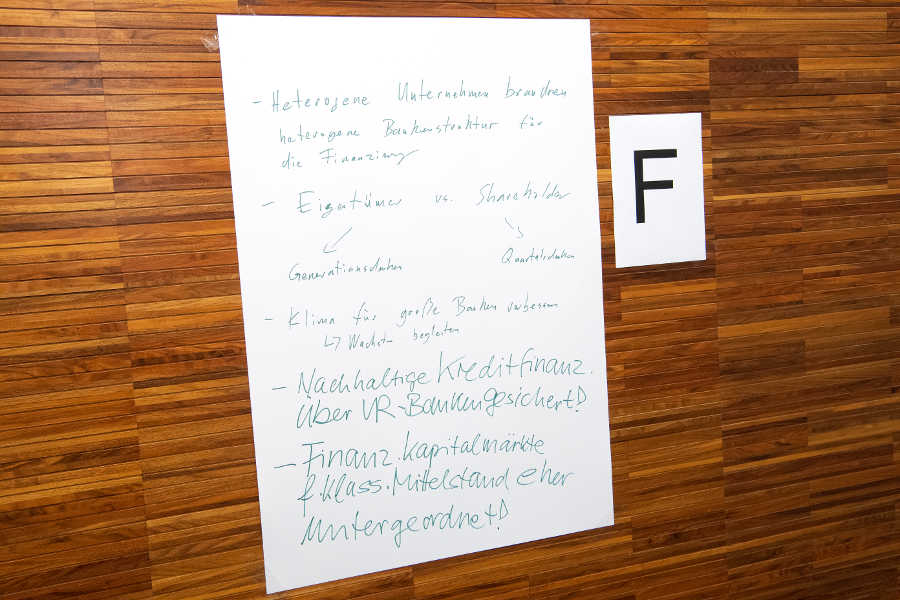 - Heterogene Unternehmen brauchen
heterogene Bankenstruktur für
die Finanzierung
- Eigentümer vs. Shareholder
Generationsdenken
Quartalsdenken
- Klima für große Banken verbessern
↳ Wachstum begleiten
- Nachhaltige Kreditfinanz.
über VR-Banken gesichert!
- Finanz. Kapitalmärkte
f. klass. Mittelstand eher
untergeordnet!
F